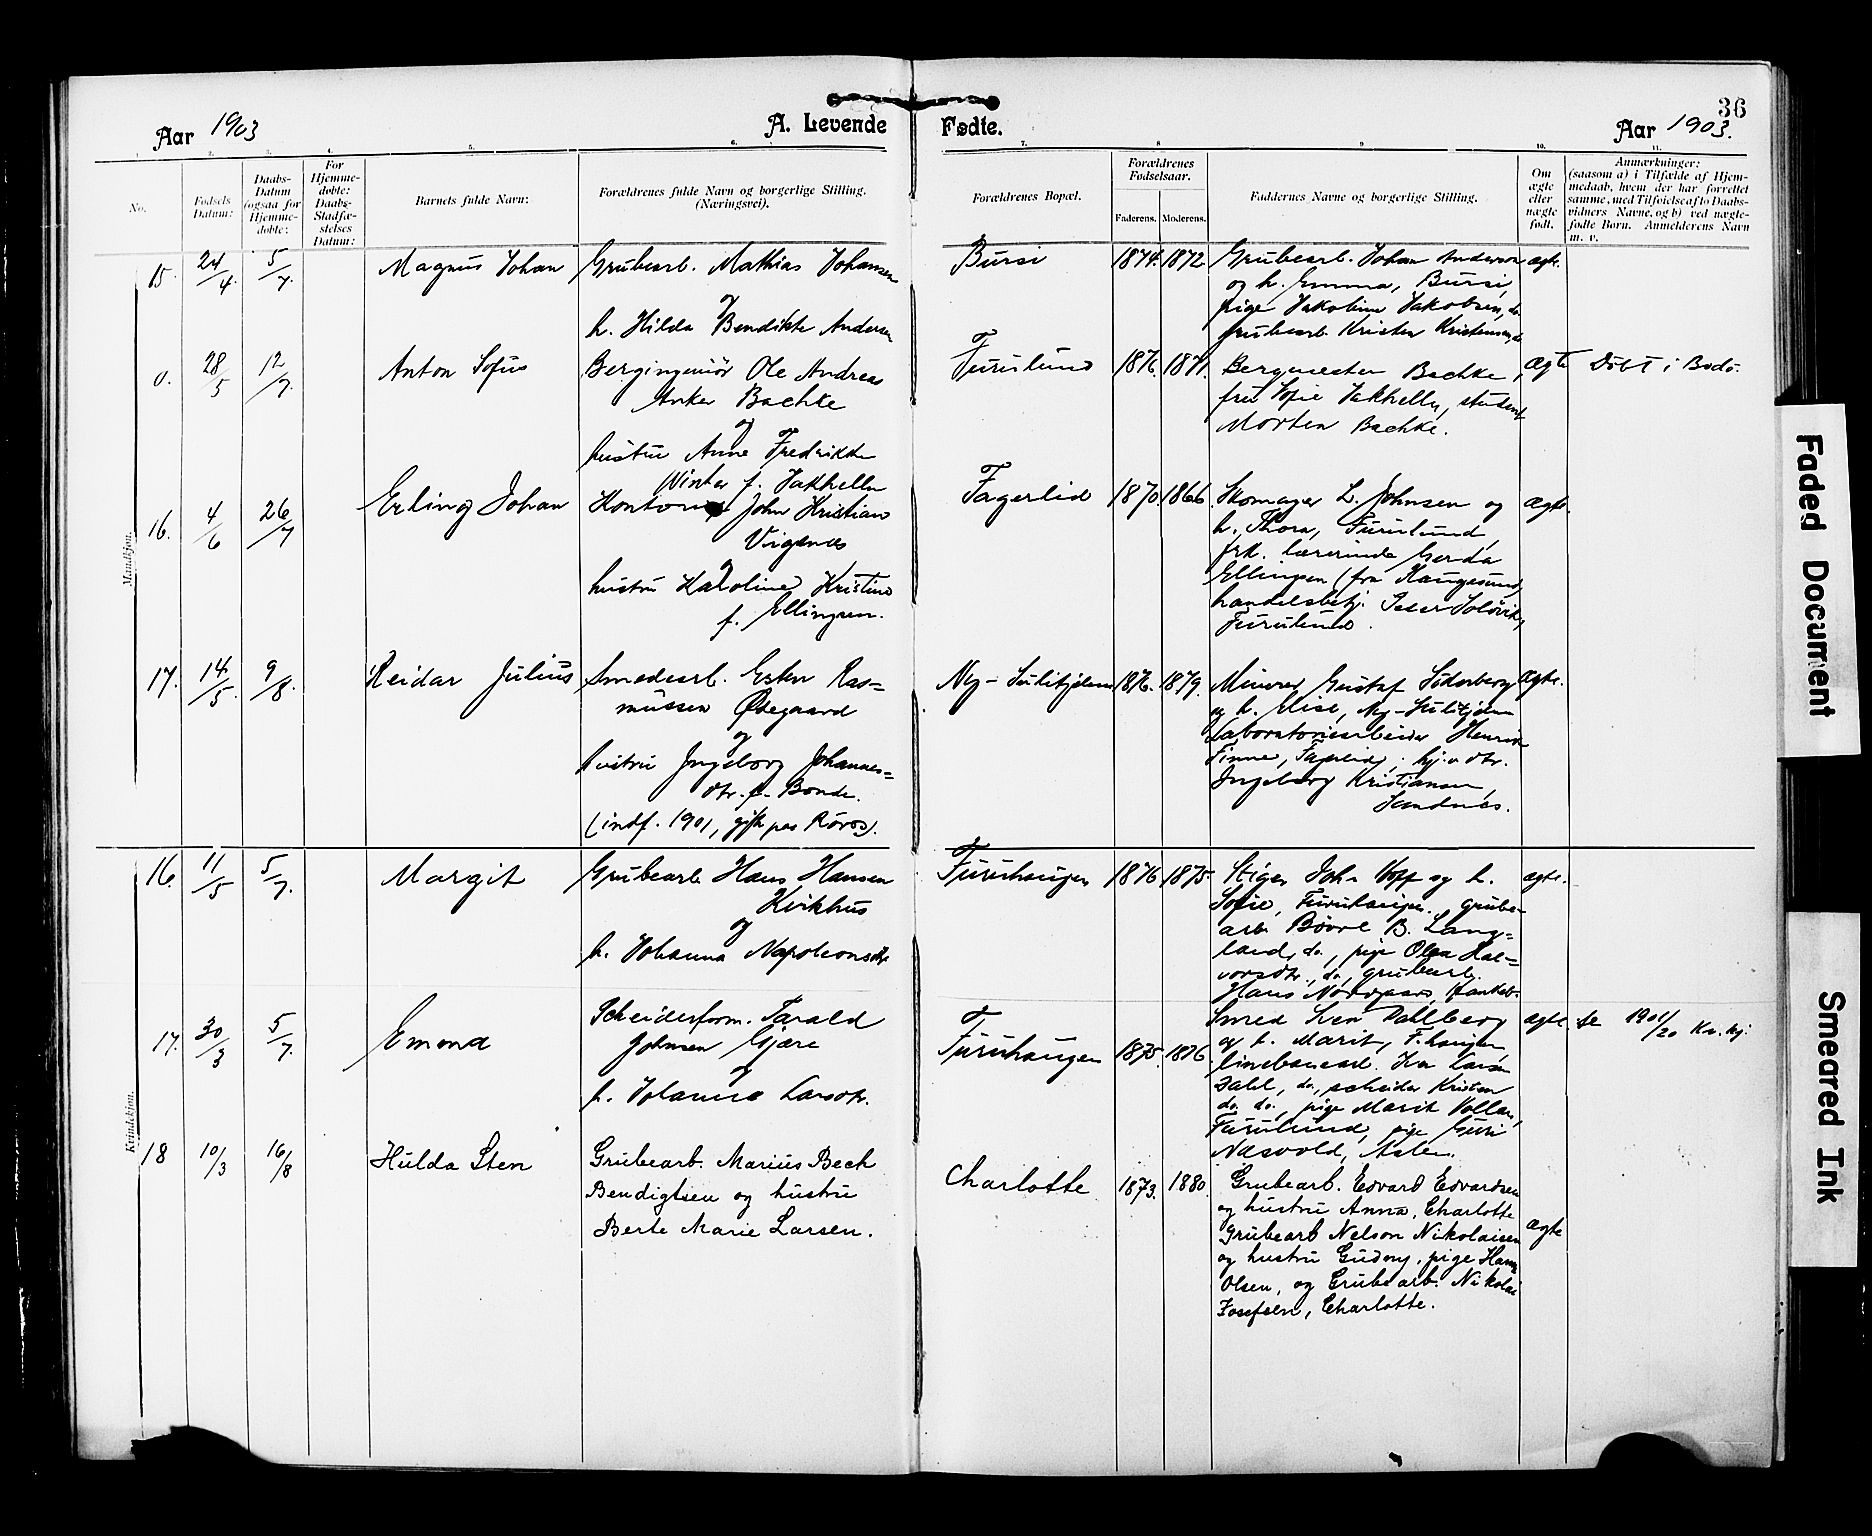 36
Aar 1903
A. Levende
Fødte.
Aar 1903.
1.
2.
3.
4.
5.
6.
7.
8
9
10.
11.
No.
Fødsels
Datum:
Daabs-
Datum
(ogsaa for
Hjemme-
døbte:
For
Hjemme-
døbte:
Daabs-
Stadfæ-
stelses
Datum:
Barnets fulde Navn:
Forældrenes fulde Navn og borgerlige Stilling.
(Næringsvei).
Forældrenes Bopæl.
Forældrenes
Fødselsaar.
Faderens.
Moderens.
Faddernes Navne og borgerlige Stilling.
Om
ægte
eller
uægte
født.
Anmærkninger:
(saasom a) i Tilfælde af Hjem-
medaab, hvem der har forrettet
samme, med Tilføielse af to Daabs-
vidners Navne, og b) ved uægte-
fødte Børn. Anmelderens Navn
m. v.
Mandkjøn.
15. 24/4. 5/7. Magnus Johan
Grubearb. Mathias Johansen
og
h. Hilda Bendikte Andersen
Bursi 1874. 1872
Grubearb. Johan Anderson
og h. Emma, Bursi,
pige Jakobine Jakobsen, do
grubearb. Kristen Kristensen, do
ægte.
0. 28/5 12/7. Anton Sofus
Bergingeniør Ole Andreas
Anker Bachke
og
hustru Anne Fredrikke
Winter f. Jakhelln
Furulund 1876. 1871.
Bergmester Bachke,
fru Sofie Jakhelln, student
Morten Bachke.
Ægte Døbt i Bodø.
16. 4/6 26/7 Erling Johan
John Kristian
Virgenes
og
hustru Karoline Kristine
f. Ellingsen.
Fagerlid 1870 1866
Skomager L. Johnsen og
h. Thora, Furulund,
frk. lærerinde Gerda
Ellingsen (fra Haugesund,
handelsbetj. Peder Solövik,
Furulund.
Ægte.
17. 14/5. 9/8. Reidar Julius
Smedearb. Esten Ras=
mussen Ødegaard
og
hustru Ingeborg Johannes=
dtr. f. Bonde.
(indf. 1901, gift paa Røros).
Ny-Sulitjelma 1876. 1879.
Minerer Gustaf Söderberg
og h. Elise, Ny-Sulitjelma
laboratoriearbeider Henrik
Finne, Fagerlid,
Ingeborg Kristiansen,
Sandnes.
Ægte.
Kvindekjøn.
16. 11/5 5/7. Margit
Grubearb. Hans Hansen
Kvikhus
og
h. Johanna Napoleonsdtr
Furuhaugen 1876 1875.
Stiger John Hoff og h.
Sofie, Furuhaugen, grube-
arb. Bövre B. Lang=
land, do, pige Olga Hal=
vorsdtr, do, grubearb.
Hans
ægte.
17. 30/3 5/7. Emma
Scheiderform. Tarald
Johnsen Gjære
og
h. Johanna Larsdtr.
Furuhaugen 1875. 1876
Smed Iver Dahlberg
og h. Marit, F.haugen
linebanearb. Iver Larsen
Dahl, do, scheider Kristen
do. do, pige Marit Vollan,
Furulund, pige Guri
Næsvold, Aslen.
ægte se 1901/20
18 10/3 16/8 Hulda Sten
Grubearb. Marius Bech
Bendigtsen og hustru
Berte Marie Larsen.
Charlotte 1873. 1880.
Grubearb. Edvard Edvardsen
og hustru Anna, Charlotte
Grubearb Nelson Nikolaisen
og hustru Gudony, pige Hanna
Olsen, og Grubearb. Nikolai
Josefsen, Charlotte.
Ægte
Faded Document
Smeared Ink